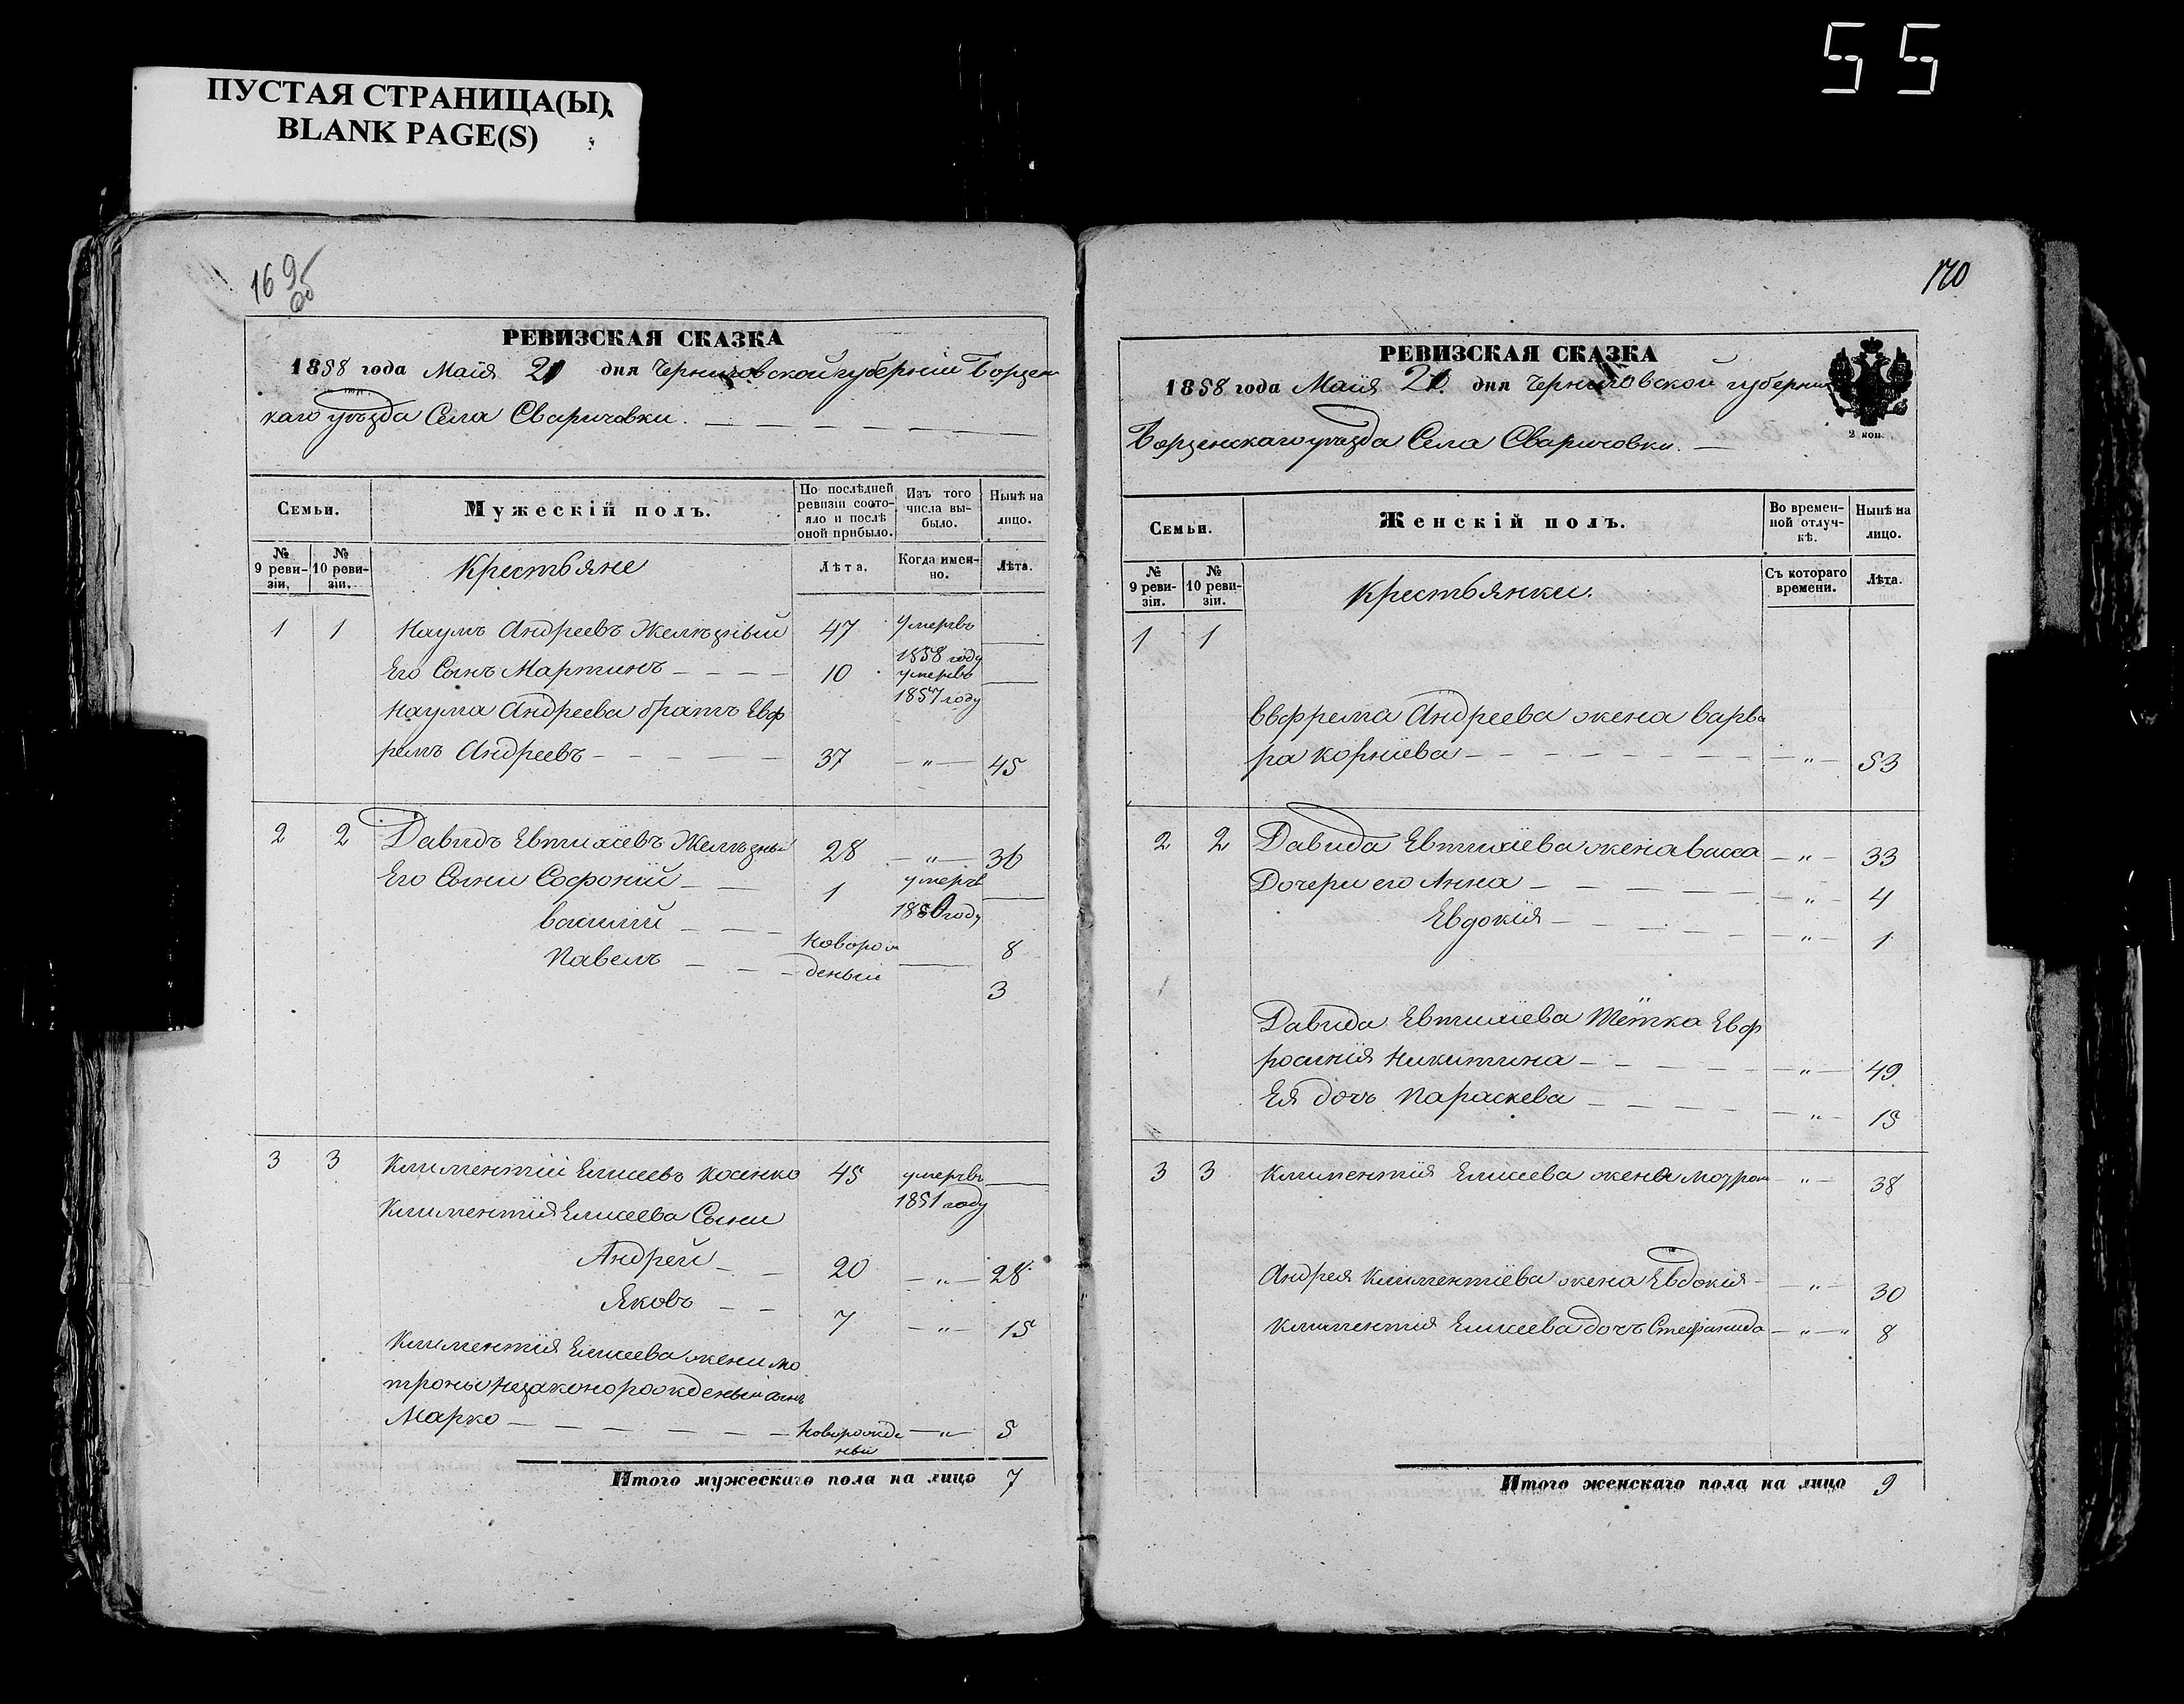 55
ПУСТАЯ СТРАНИЦА(Ы)
BLANK PAGE(S)
169
об
РЕВИЗСКАЯ СКАЗКА
1858 года Маія 21 дня Черниговской губерніи Борзен
каго уѣзда Села Сваричовки.
Семьи.
Мужескій полъ.
По послѣдней ревизіи состояло и послѣ оной прибыло.
Изъ того числа выбыло.
Нынѣ на лицо.
№ 9 ревизіи.
№ 10 ревизіи.
Крестьяне
Лѣта.
Когда именно.
Лѣта.
1 1 Наумъ Андреевъ Желѣзный 47 умеръ 1858 году
Его Сынъ Мартинъ 10 умеръ 1857 году
Наума Андреева братъ Евф
ремъ Андреевъ 37 „ 45
2 2 Давидъ Евтихіевъ Желѣзный 28 „ 36
Его Сыни Софоній 1 умеръ 1850 году
Василій 8
Павелъ Новорож деный 3
3 3 Климентій Елисеевъ Косенко 45 умеръ 1851 году
Климентія Елисеева Сыни
Андрей 20 „ 28
Яковъ 7 „ 15
Климентія Елисеева жени Мо
троны Незаконорожденый сынъ
Марко Новорожде ный „ 5
Итого мужескаго пола на лицо 7
170
РЕВИЗСКАЯ СКАЗКА
1858 года Маія 21 дня Черниговской губерніи
2 коп.
Борзенскаго уѣзда Села Сваричовки.
Семьи.
Женскій полъ.
Во временной отлучкѣ.
Нынѣ на лицо.
№ 9 ревизіи.
№ 10 ревизіи.
Крестьянки.
Съ котораго времени.
Лѣта.
1 1
Евфрема Андреева жена Варва
ра Корніева „ 53
2 2 Давида Евтихіева жена Васса „ 33
Дочери его Анна „ 4
Евдокія „ 1
Давида Евтихіева Тётка Евф
росинія Никитина „ 49
Ея дочь Параскева „ 15
3 3 Климентія Елисеева жена Мотрона „ 38
Андрея Климентіева жена Евдокія „ 30
Климентія Елисеева дочъ Стефанида „ 8
Итого женскаго пола на лицо 9